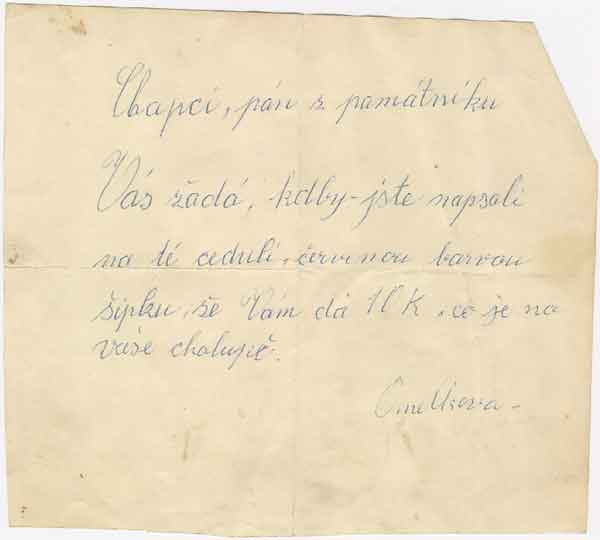 Chapci, pán z památníku
Vás žádá, kdby-jste napsali
na té ceduli, červenou barvou
šipku, že Vám dá 10 K, co je na
váše chalupě.
Omelkova